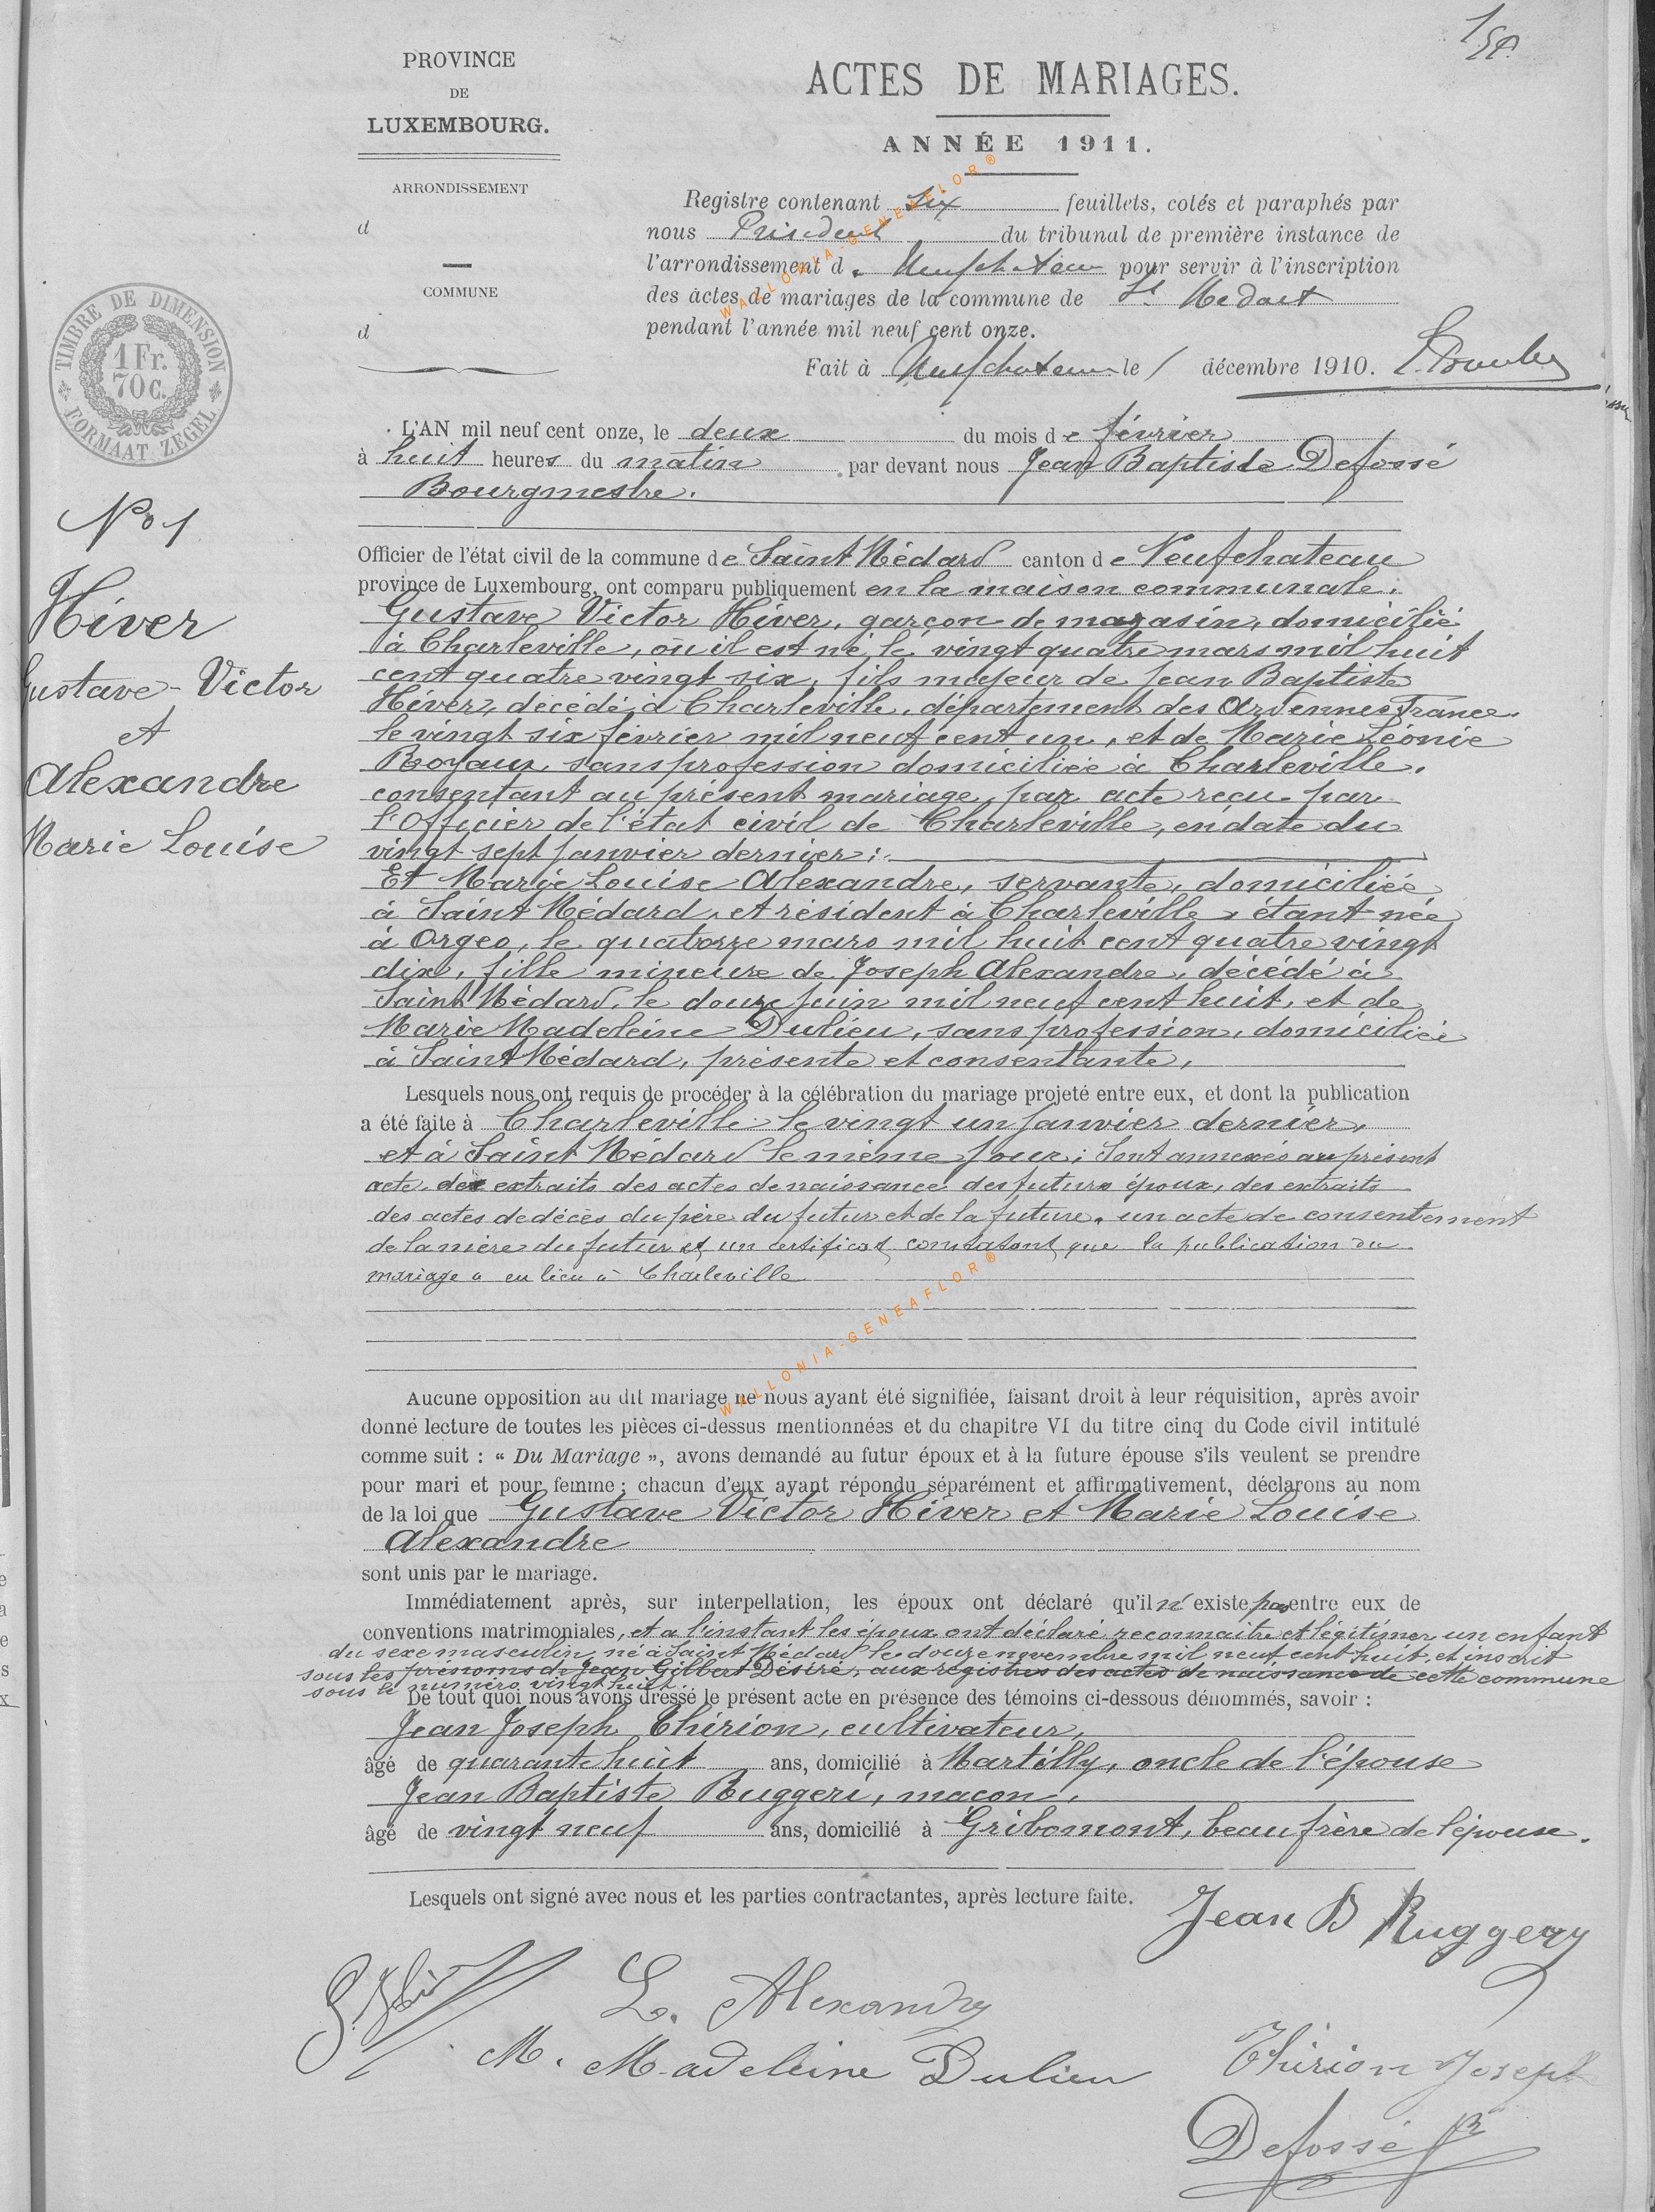 1
PROVINCE
DE
LUXEMBOURG.
ARRONDISSEMENT
d
COMMUNE
d
TIMBRE DE DIMENSION
1 Fr.
70 C.
FORMAAT ZEGEL
ACTES DE MARIAGES.
ANNÉE 1911.
Registre contenant Six feuillets, cotés et paraphés par
nous Président du tribunal de première instance de
l'arrondissement de Neufchateau pour servir à l'inscription
des actes de mariages de la commune de St Médart
pendant l'année mil neuf cent onze.
Fait à Neufchateau le 1 décembre 1910.
WALLONIA-GENEAFLOR®
L'AN mil neuf cent onze, le deux du mois de février
à huit heures du matin par devant nous Jean Baptiste Defossé
Bourgmestre.
No 1
Hiver
Gustave-Victor
et
Alexandre
Marie Louise
Officier de l'état civil de la commune de Saint Médard canton de Neufchateau
province de Luxembourg, ont comparu publiquement en la maison communale.
Gustave Victor Hiver, garçon de magasin, domicilié
à Charleville, où il est né le vingt quatre mars mil huit
cent quatre vingt six, fils majeur de Jean Baptiste
Hiver, décédé à Charleville, département des Ardennes France.
le vingt six février mil neuf cent un, et de Marie Léonie
Royaux, sans profession domiciliée à Charleville.
consentant au présent mariage, par acte reçu par
l'Officier de l'état civil de Charleville, en date du
vingt sept janvier dernier;
Et Marie Louise Alexandre, servante, domiciliée
à Saint Médard, et résident à Charleville, étant née
à Orgeo, le quatorze mars mil huit cent quatre vingt
dix, fille mineure de Joseph Alexandre, décédé à
Saint Médard, le douze juin mil neuf cent huit, et de
Marie Madeleine Dulieu, sans profession, domiciliée
à Saint Médard, présente et consentante,
Lesquels nous ont requis de procéder à la célébration du mariage projeté entre eux, et dont la publication
a été faite à Charleville le vingt un janvier dernier,
et à Saint Médard le même jour; Sont annexés au présent
acte des extraits des actes de naissance des futurs époux, des extraits
des actes de décès du père du futur et de la future, un acte de consentement
de la mère du futur et un certificat constatant que la publication du
mariage a eu lieu à Charleville
WALLONIA-GENEAFLOR®
Aucune opposition au dit mariage ne nous ayant été signifiée, faisant droit à leur réquisition, après avoir
donné lecture de toutes les pièces ci-dessus mentionnées et du chapitre VI du titre cinq du Code civil intitulé
comme suit : « Du Mariage », avons demandé au futur époux et à la future épouse s'ils veulent se prendre
pour mari et pour femme ; chacun d'eux ayant répondu séparément et affirmativement, déclarons au nom
de la loi que Gustave Victor Hiver et Marie Louise
Alexandre
sont unis par le mariage.
Immédiatement après, sur interpellation, les époux ont déclaré qu'il n'existe pas entre eux de
conventions matrimoniales, et a l'instant les époux ont déclaré reconnaitre et légitimer un enfant
du sexe masculin né à Saint Médard le douze novembre mil neuf cent huit, et inscrit
sous les prénoms de Jean Gilbert Désiré, aux registres des actes de naissance de cette commune
sous le numéro vingt huit.
De tout quoi nous avons dressé le présent acte en présence des témoins ci-dessous dénommés, savoir :
Jean Joseph Thirion, cultivateur,
âgé de quarante huit ans, domicilié à Martilly, oncle de l'épouse
Jean Baptiste Ruggeri, maçon,
âgé de vingt neuf ans, domicilié à Gribomont, beau frère de l'épouse.
Lesquels ont signé avec nous et les parties contractantes, après lecture faite.
Jean B Ruggery
L. Alexandre
M. Madeleine Dulieu
Thirion Joseph
Defossé JB